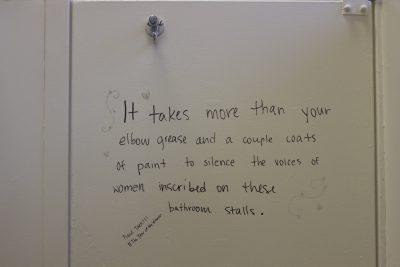 It takes more than your
elbow grease and a couple coats
of paint to silence the voices of
women inscribed on these
bathroom stalls.